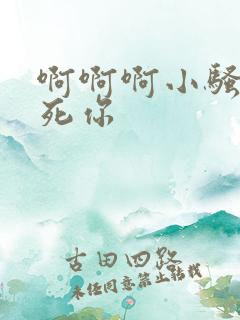 啊啊啊小骚
死你
古田四路
未经同意禁止转载